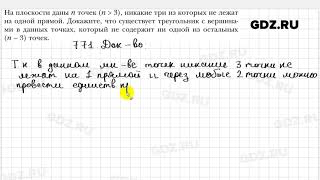 На плоскости даны n точек (n > 3), никакие три из которых не лежат
на одной прямой. Докажите, что существует треугольник с вершина-
ми в данных точках, который не содержит ни одной из остальных
(n – 3) точек.
GDZ.RU
771 Док-во
Т к в данном мн-ве точек никакие 3 точки не
лежат на 1 прямой и через любые 2 точки можно
провести единств пр
GDZ.RU